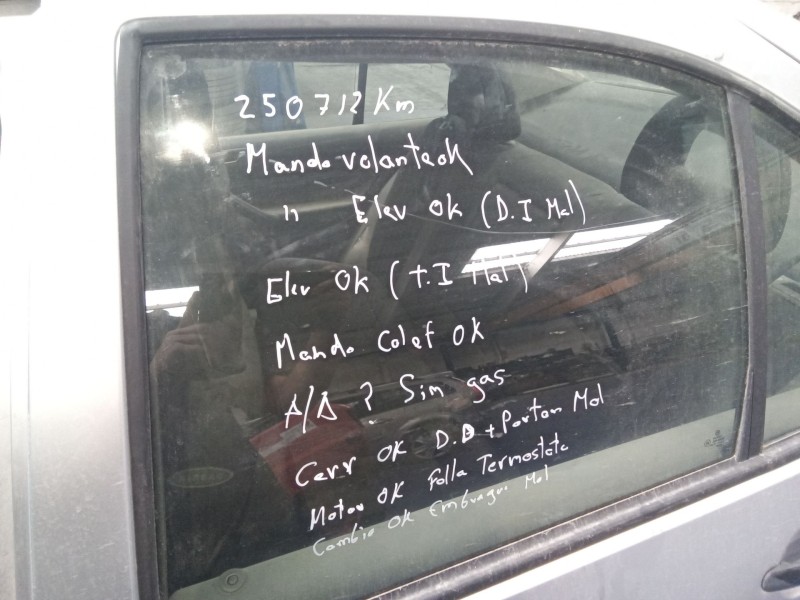 250712 Km
Mando volante ok
" Elev ok (D.I Mal)
Elev Ok (t.I Mal)
Mando Calef OK
A/A ? Sin gas
Cerr OK D.D + Porton Mal
Motor OK Falla Termostato
Cambio OK Embrague Mal